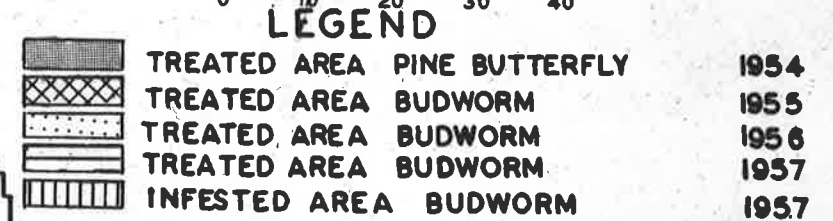 0 10 20 30 40
LEGEND
TREATED AREA PINE BUTTERFLY 1954
TREATED AREA BUDWORM 1955
TREATED AREA BUDWORM 1956
TREATED AREA BUDWORM 1957
INFESTED AREA BUDWORM 1957